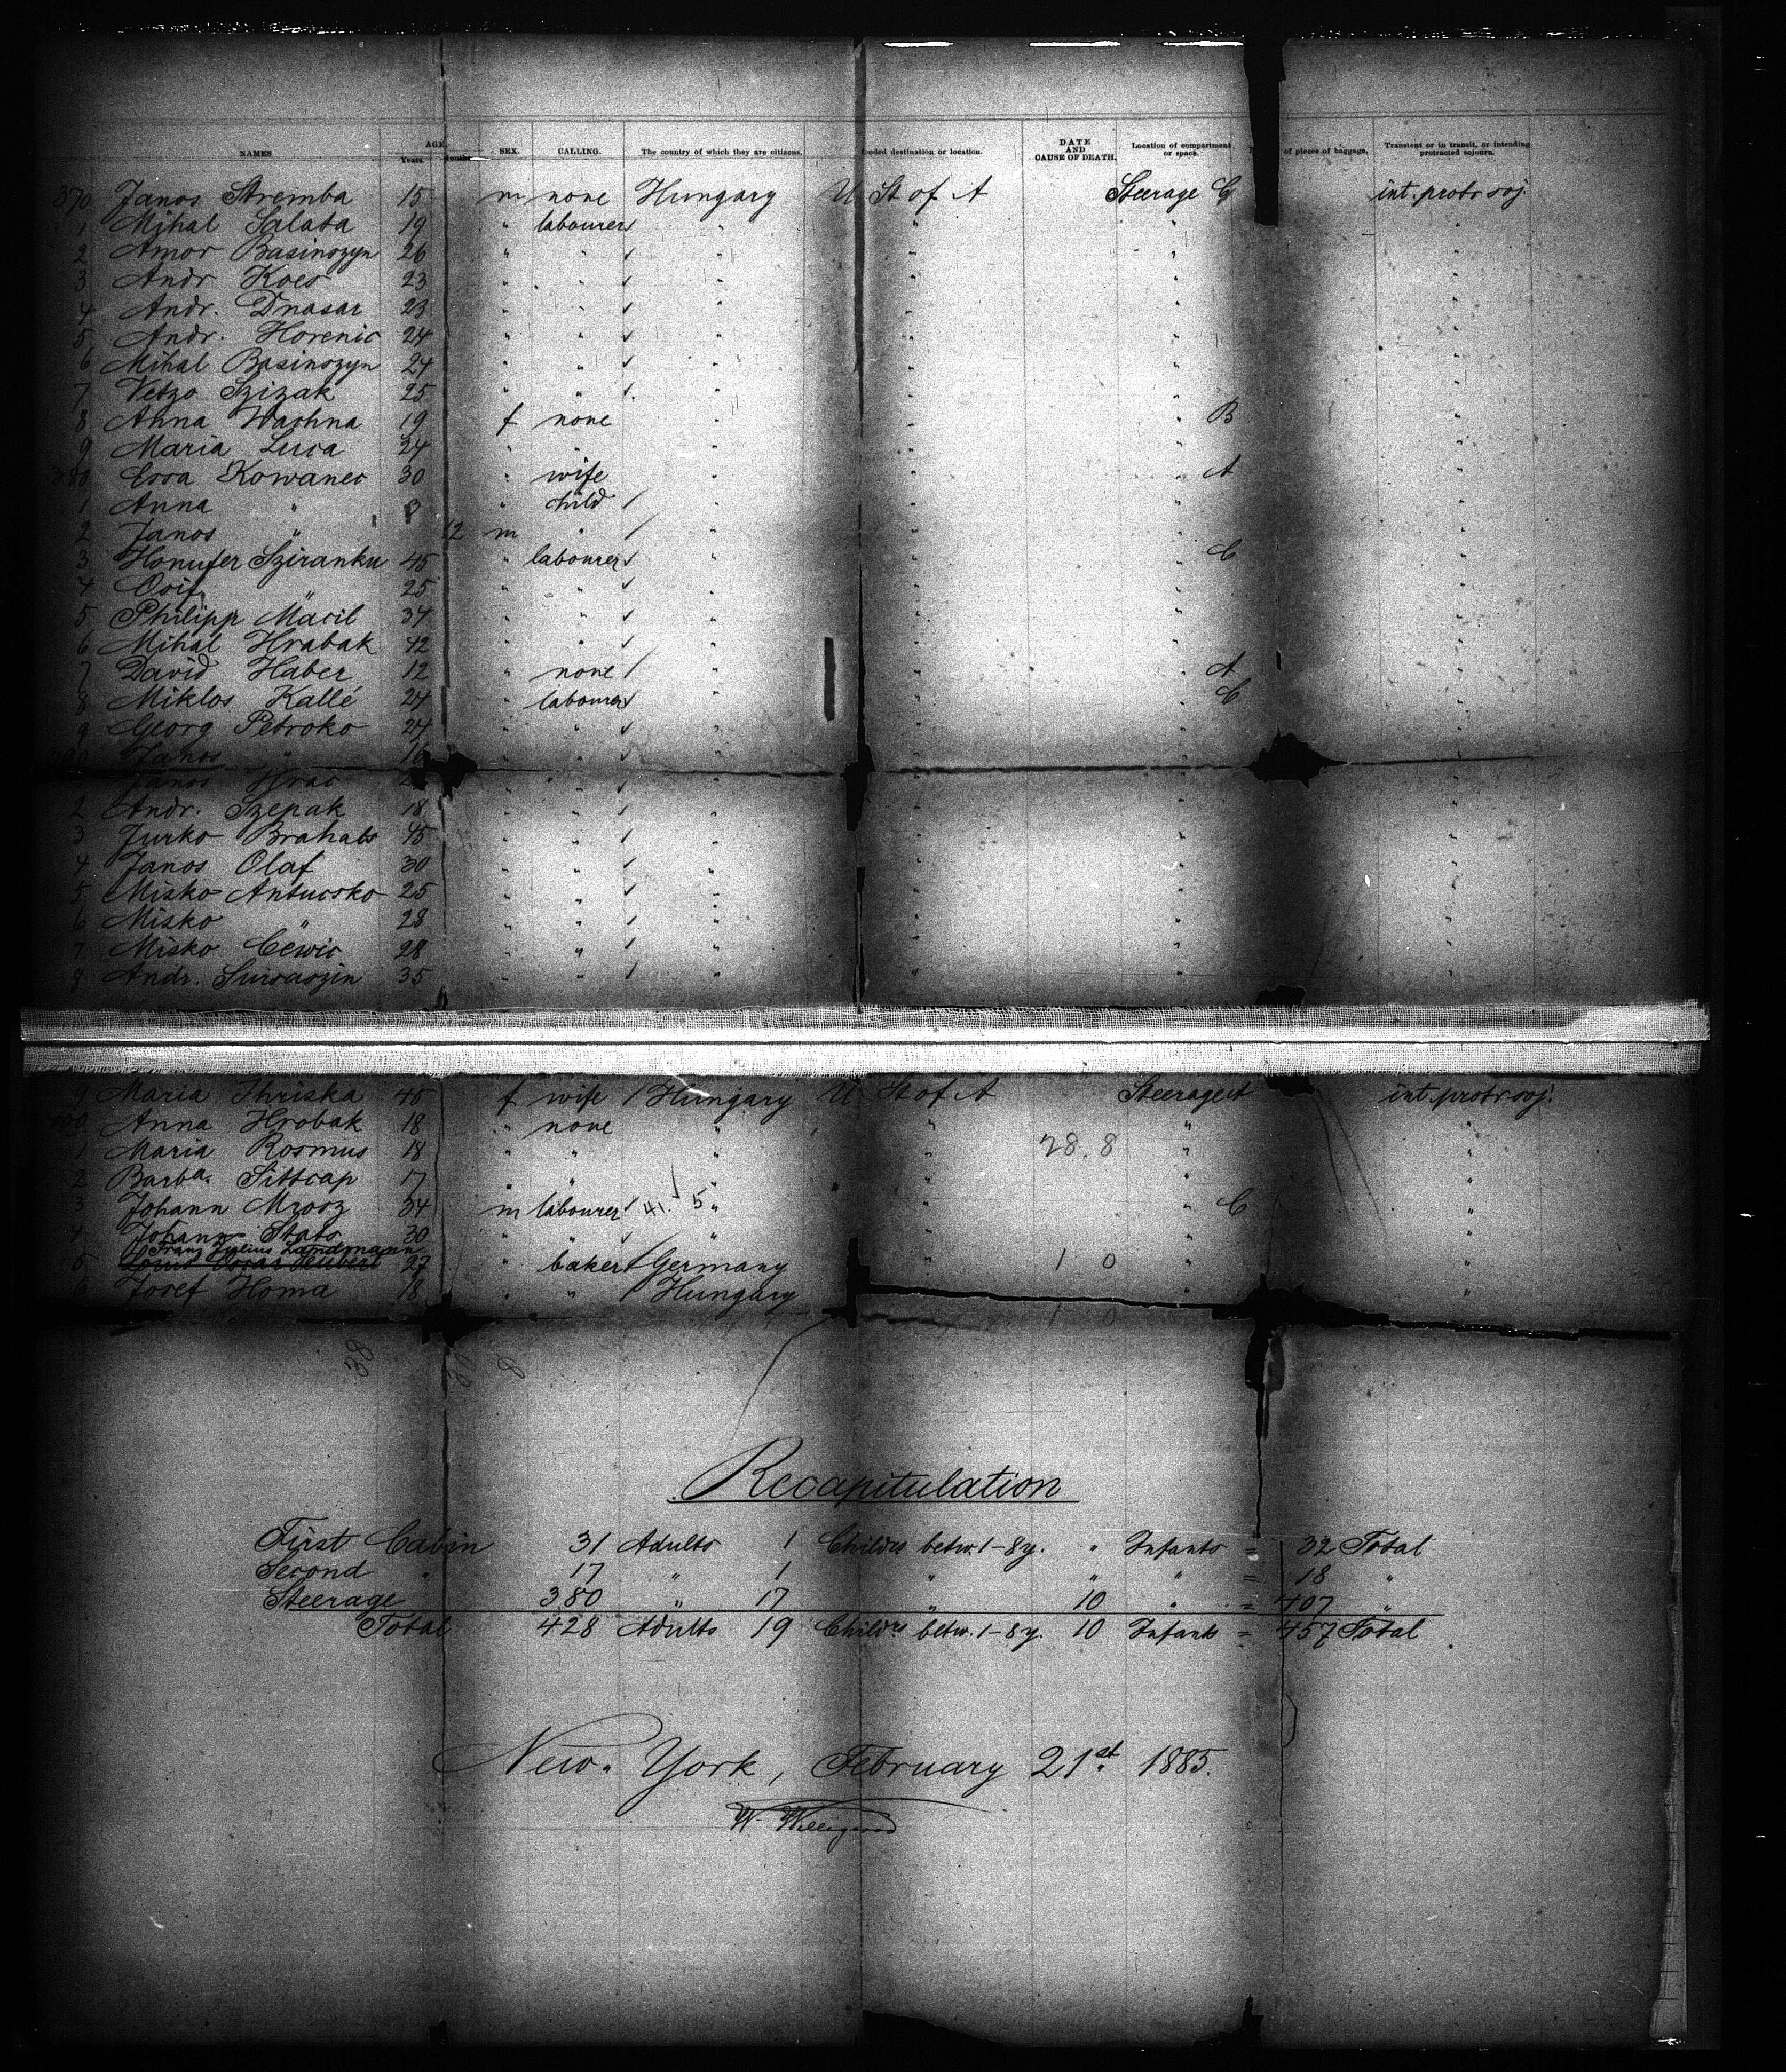 NAMES AGE Years. Months SEX. CALLING. The country of which they are citizens. ended destination or location. DATE AND CAUSE OF DEATH. Location of compartment or space. of pieces of baggage. Transient or in transit, or intending protracted sojourn.
370 Janos Stremba 15 m none Hungary U St of A Steerage C int. protr soj.
1 Mihal Salata 19 " labourer " " " "
2 Amor Basinszyn 26 " " " " " "
3 Andr Koes 23 " " " " " "
4 Andr. Dnasar 23 " " " " " "
5 Andr. Horenic 24 " " " " " "
6 Mihal Basinszyn 24 " " " " " "
7 Vetzo Szizak 25 " " " " " "
8 Anna Wachna 19 f none " " " B "
9 Maria Luca 24 " " " " " "
380 Erra Kowanec 30 " wife " " " A "
1 Anna " 8 " child " " " "
2 Janos " 12 m " " " " "
3 Honufer Sziranku 45 " labourer " " " C "
4 " 25 " " " " " "
5 Philipp Macil 34 " " " " " "
6 Mihal Hrabak 42 " " " " " "
7 David Haber 12 " none " " " A "
8 Miklos Kallé 24 " labourer " " " C "
9 Georg Petroko 24 " " " " " "
Janos " 16 " " " " " "
Janos Hrac " " " " " "
2 Andr. Szepak 18 " " " " " "
3 Jurko Brahats 45 " " " " " "
4 Janos Olaf 30 " " " " " "
5 Misko Antucsko 25 " " " " " "
6 Misko " 28 " " " " " "
7 Misko Cewic 28 " " " " " "
8 Andr. 35 " " " " " "
9 Maria Ihriska 40 f wife Hungary U St of A Steerage A int. protr soj.
400 Anna Hrobak 18 " none " " " "
1 Maria Rosmus 18 " " " " 28.8 " "
2 Barba. Sittcap 17 " " " " " "
3 Johann Mrosz 34 m labourer 41. 5 " " " C "
4 Johann Stats 30 " " " " " "
Franz Julius Landmann
5 Louis Oscar Heubert 27 " baker Germany " 1 0 " "
6 Josef Homa 18 " " Hungary " "
1 0
38 20 8
Recapitulation
First Cabin 31 Adults 1 Childrs betw. 1-8 y. " Infants = 32 Total
Second " 17 " 1 " " " = 18 "
Steerage 380 " 17 " 10 " = 407 "
Total 428 Adults 19 Childrs betw. 1-8 y. 10 Infants = 457 Total
New York, February 21st. 1885.
W. Willigerod